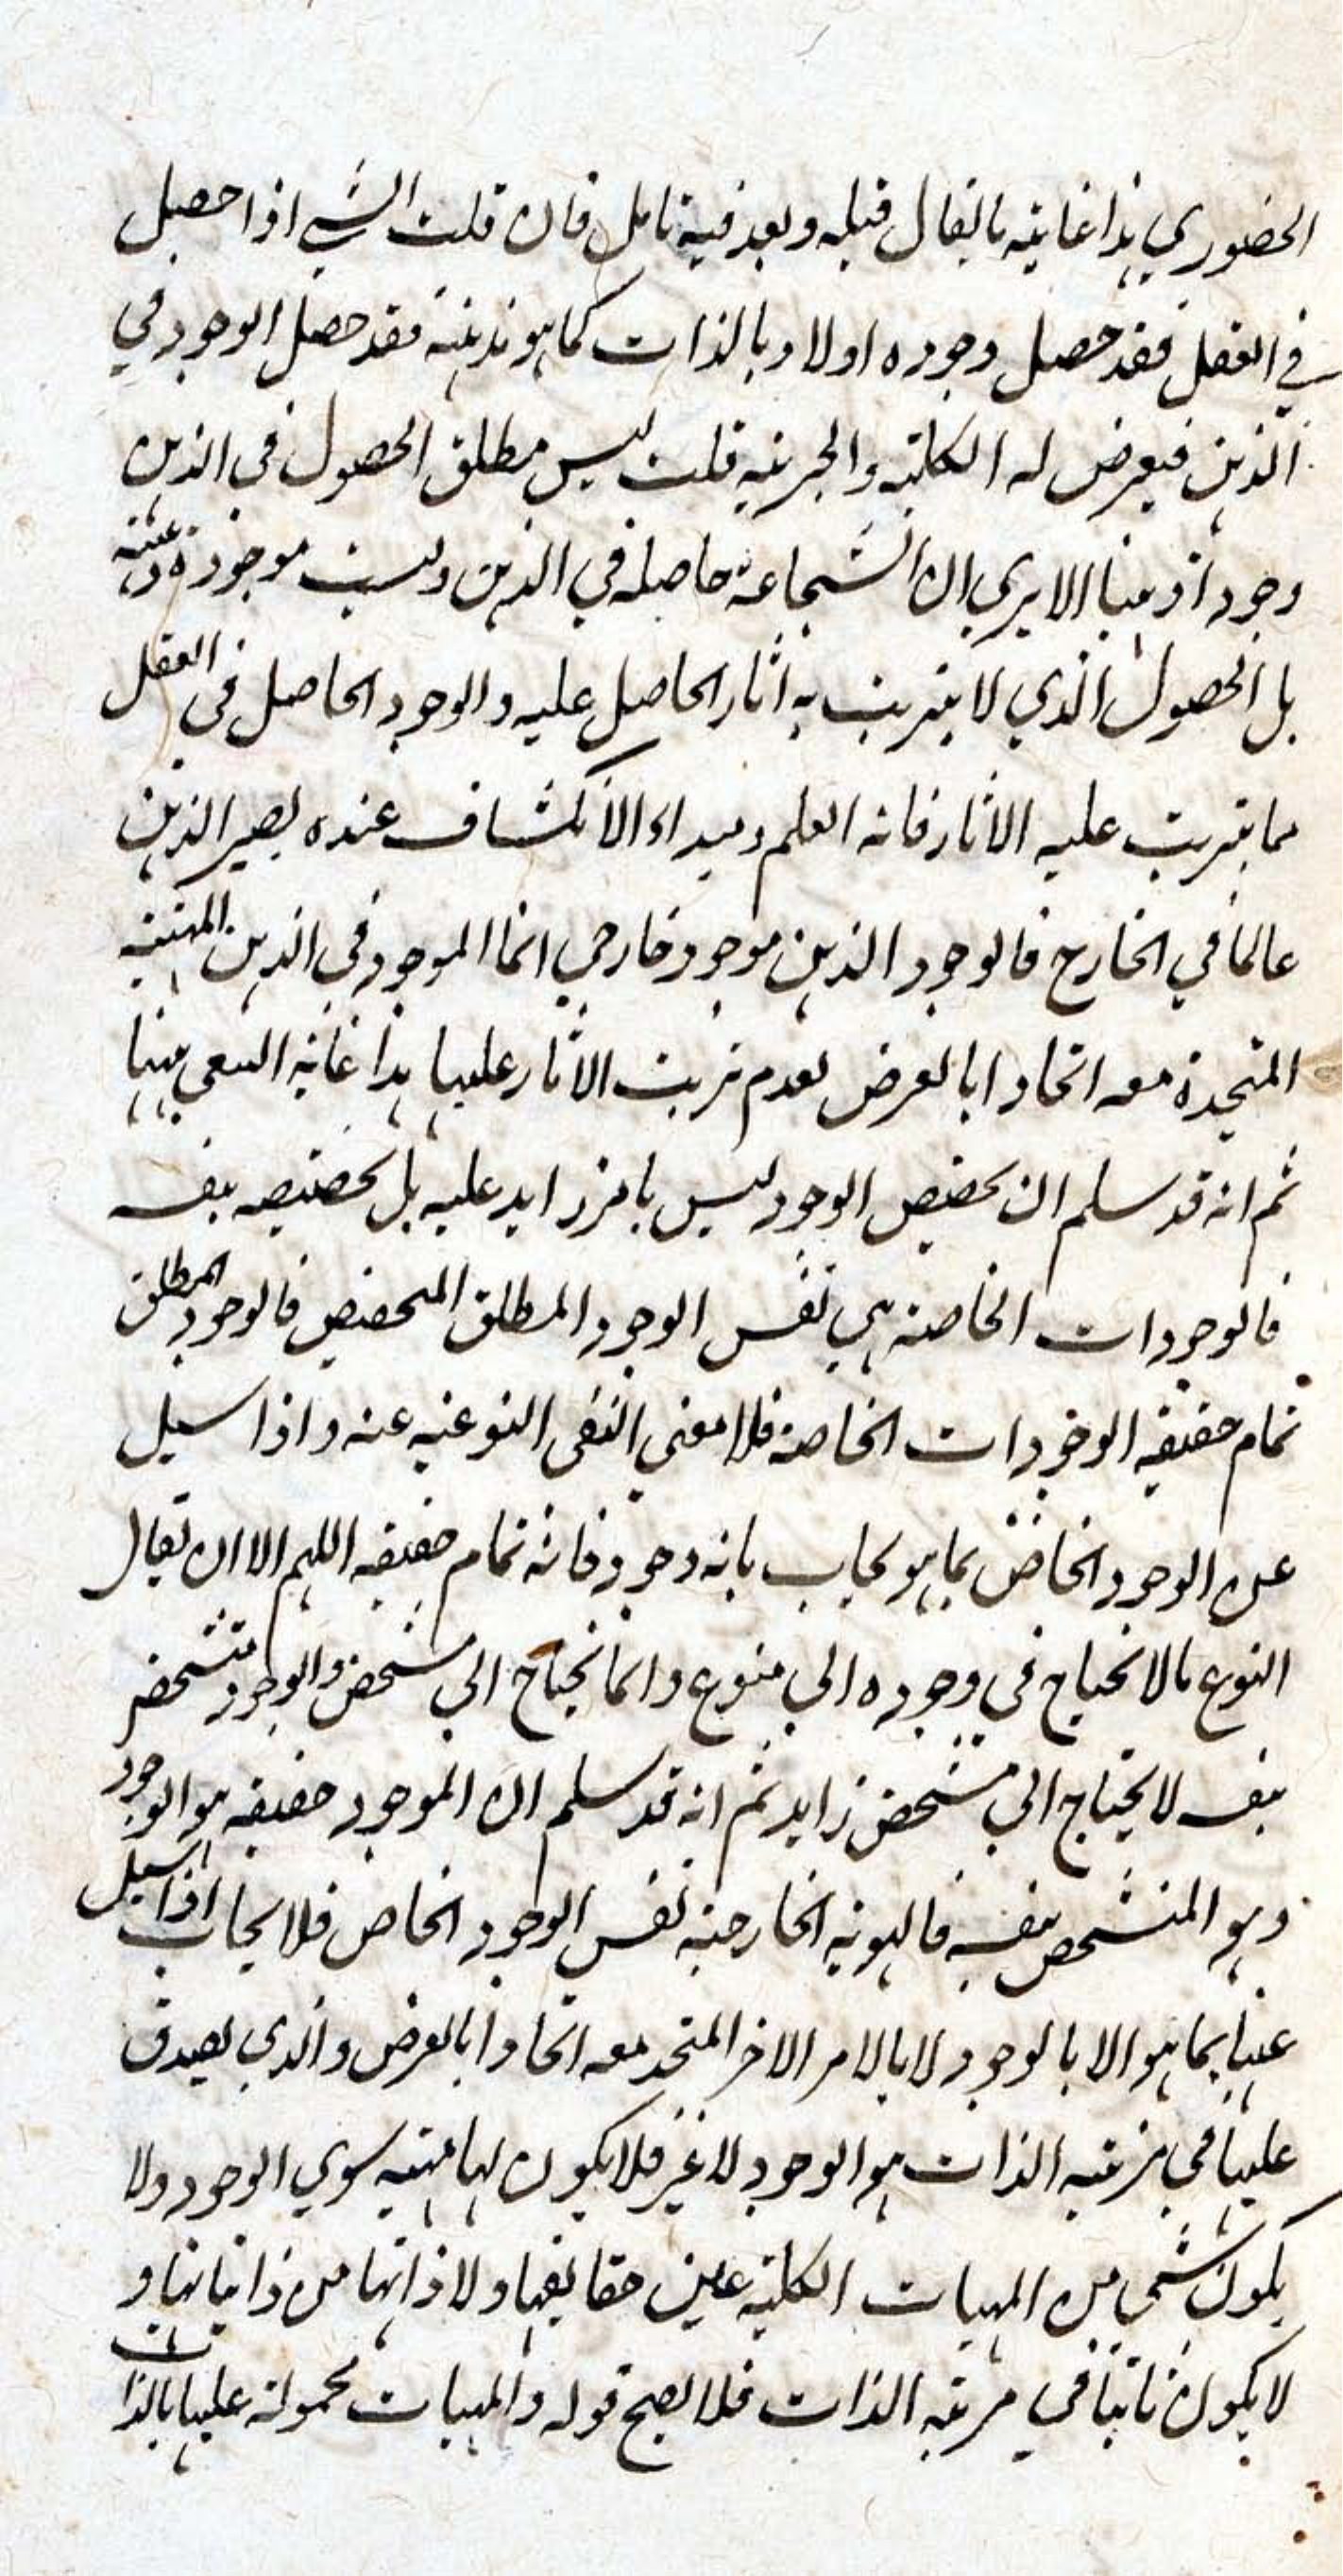 الحضوري هذا غاية ما يقال قبله وبعد فيه تامل فان قلت الشي اذا حصل
في العقل فقد حصل وجوده اولا وبالذات كما هو مذهبه فقد حصل الوجود في
الذهن فيعرض له الكلية والجزئية قلت ليس مطلق الحصول في الذهن
وجودا ذهنيا الا يري ان الشجاعة حاصلة في الذهن وليست موجودة ذهنية
بل الحصول الذي لا يترتب به اثار الحاصل عليه والوجود الحاصل في العقل
مما يترتب عليه الاثار فانه العلم ومبداء الانكشاف عنده يصير الذهن
عالما في الخارج فالوجود الذهن موجود خارجي انما الموجود في الذهن المهية
المتحدة معه اتحادا بالعرض لعدم ترتب الاثار عليها هذا غاية السعي ههنا
ثم انه قد سلم ان تحصيص الوجود ليس بامر زايد عليه بل تحصيصه بنفسه
فالوجودات الخاصة هي نفس الوجود المطلق المتحصص فالوجود المطلق
تمام حقيقة الوجودات الخاصة فلا معني النفي النوعية عنه واذا سيل
عن الوجود الخاص بما هو يجاب بانه وجود فانه تمام حقيقة اللهم الا ان يقال
النوع ما لا يحتاج في وجوده الي منوع وانما يحتاج الي مشخص والوجود متشخص
بنفسه لا يحتاج الي مشخص زايد ثم انه قد سلم ان الموجود حقيقة هو الوجود
وهو المتشخص بنفسه فالهوية الخارجية نفس الوجود الخاص فلا يجاب اذا سيل
عنها بما هو الا بالوجود لا بالامر الاخر المتحد معه اتحادا بالعرض والذي يصدق
عليها في مرتبة الذات هو الوجود لا غير فلا يكون لها مهية سوي الوجود ولا
يكون شي من المهيات الكلية عين حقايقها ولا ذاتها من ذاتياتها و
لا يكون ثابتا في مرتبة الذات فلا يصح قوله والمهيات محمولة عليها بالذات